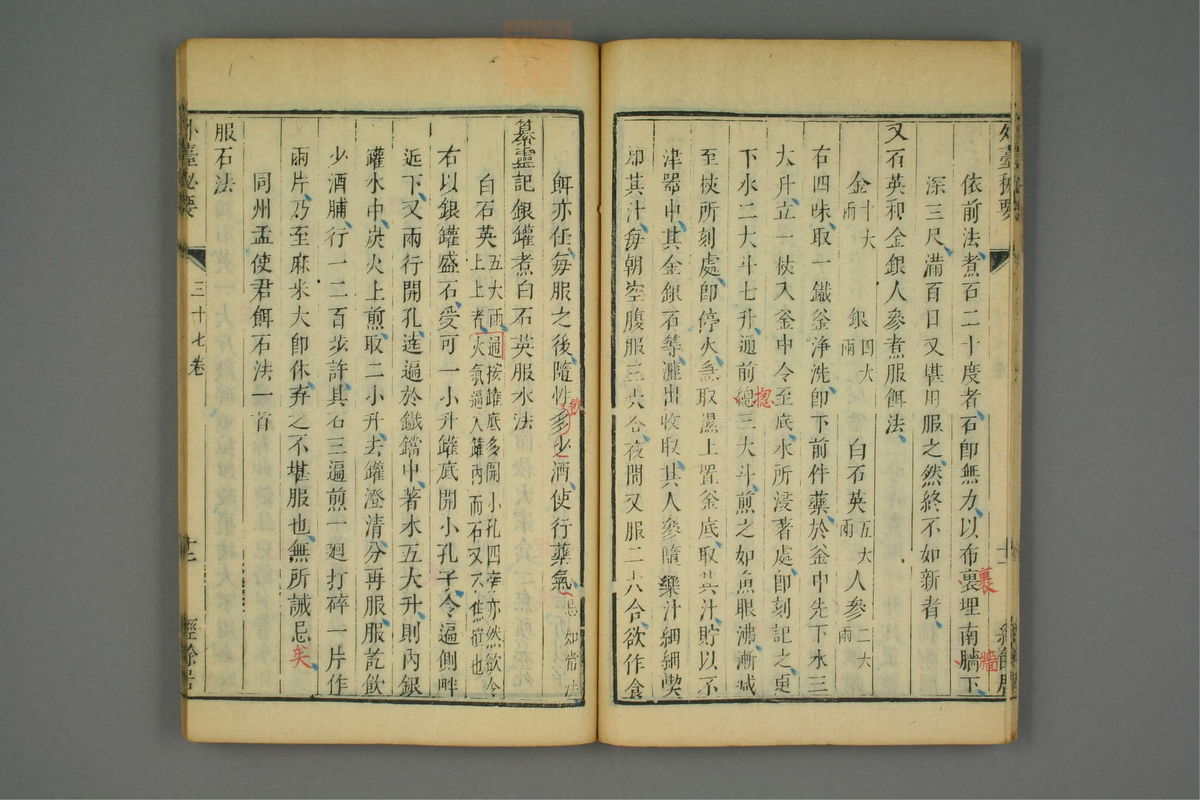 依前法煮石二十度者石即無力以布裏埋南牆下
裹
牆
深三尺滿百日又堪用服之然終不如新者
又石英和金銀人參煮服餌法
金十大兩 銀四大兩 白石英五大兩 人參二大兩
右四味取一鐵釜淨洗即下前件藥於釜中先下水三
大升立一杖入釜中令至底水所浸著處即刻記之更
下水二大斗七升通前總三大斗煎之如魚眼沸漸減
揔
至杖所刻處即停火急取濕土置釜底取其汁貯以不
津器中其金銀石等漉出收取其人參隨藥汁細細喫
却其汁每朝空腹服三大合夜間又服二大合欲作食
餌亦任每服之後隨性多少酒使行藥氣忌如常法
飲
纂靈記銀罐煮白石英服水法
白石英五大兩上上者 遍按罐底多開小孔四旁亦然飲令火氣逼入罐內而石又不焦損也
右以銀罐盛石受可一小升罐底開小孔子令遍側畔
近下又兩行開孔遶遍於鐵鐺中著水五大升則內銀
罐水中炭火上煎取二小升去罐澄清分再服服訖飲
少酒脯行一二百步許其石三遍煎一廻打碎一片作
兩片乃至麻米大即休弃之不堪服也無所誡忌
矣
同州孟使君餌石法一首
服石法
外臺秘要
三十七卷
十二
經餘居